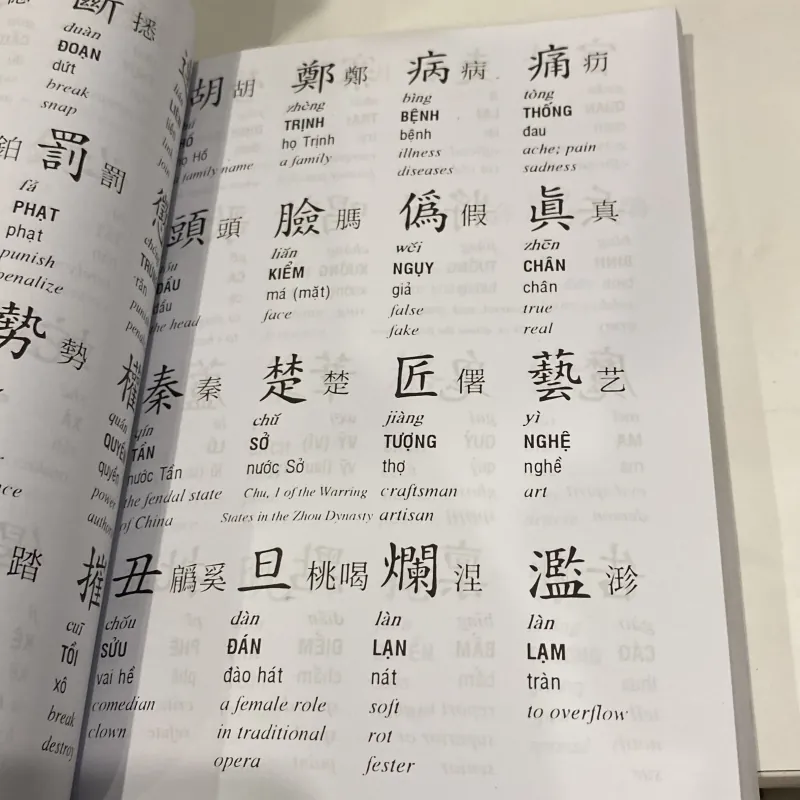 斷
duàn
ĐOẠN
dứt
break
snap
罰 罰
fá
PHẠT
phạt
punish
penalize
勢 勢
權
quán
QUYỀN
quyền
power
踏
摧
cuī
TỒI
xô
break
destroy
胡 胡
family name
鄭 鄭
zhèng
TRỊNH
họ Trịnh
a family
病 病
bìng
BỆNH
bệnh
illness
diseases
痛
tòng
THỐNG
đau
ache; pain
sadness
頭 頭
ĐẦU
đầu
the head
臉
liăn
KIỂM
má (mặt)
face
僞 假
wěi
NGỤY
giả
false
fake
眞 真
zhēn
CHÂN
chân
true
real
秦 秦
qín
TẦN
nước Tần
the fendal state
of China
楚 楚
chŭ
SỞ
nước Sở
Chu, 1 of the Warring
States in the Zhou Dynasty
匠
jiàng
TƯỢNG
thợ
craftsman
artisan
藝 艺
yì
NGHỆ
nghề
art
丑
chŏu
SỬU
vai hề
comedian
clown
旦 桃喝
dàn
ĐÁN
đào hát
a female role
in traditional
opera
爛 涅
làn
LẠN
nát
soft
rot
fester
濫
làn
LẠM
tràn
to overflow